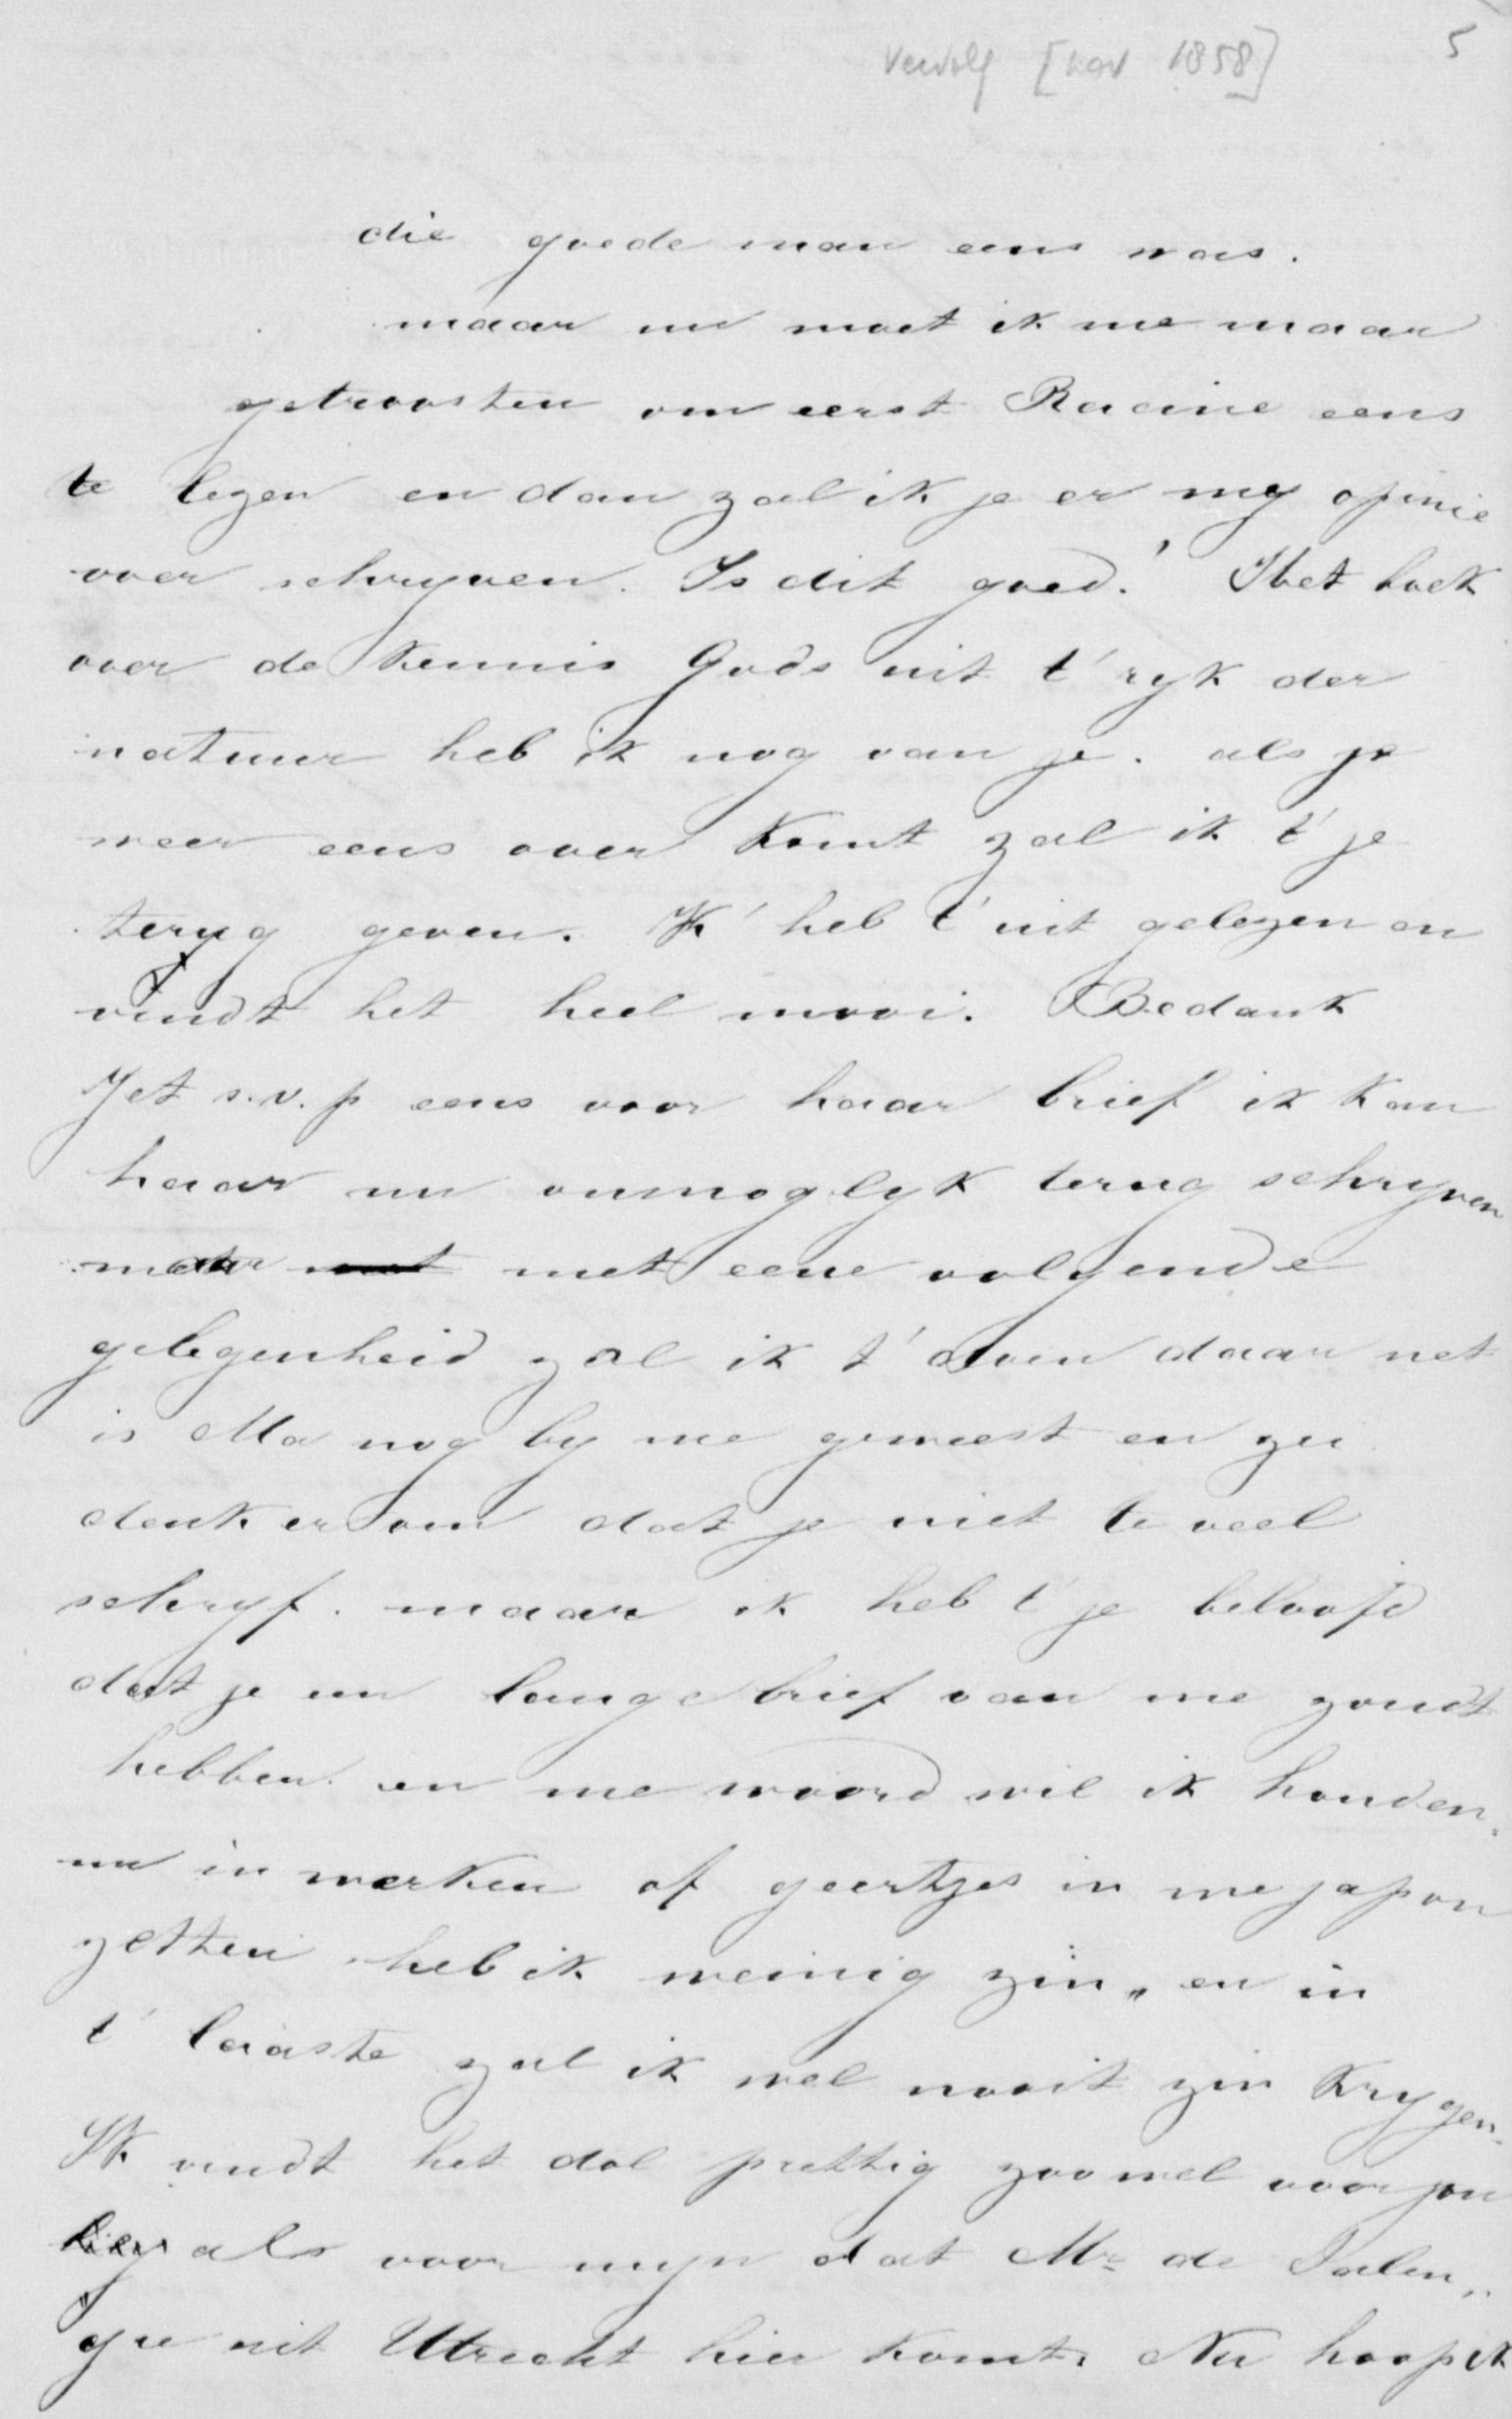 Vervolg [nov 1858] 5
die goede man eens was.
maar nu moet ik me maar
getroosten om eerst Racine eens
te lezen en dan zal ik je er my opinie
over schryven. Is dit goed.' Het boek
over de Kennis Gods uit t' ryk der
natuur heb ik nog van je. als je
weer eens over Komt zal ik t' je
terug geven. K' heb t' uit gelezen en
vindt het heel mooi. Bedank
Jet s.v.p eens voor haar brief ik kan
haar nu onmoglyk terug schryven
maar met eene volgende
gelegenheid zal ik t' doen daar net
is Ma nog by me geweest en zei
denk er om dat je niet te veel
schryf. maar ik heb t' je beloofd
dat je nu lange brief van me zoudt
hebben en me woord wil ik houden.
nu in werken of geertjes in me japon
zetten heb ik weinig zin „ en in
t' laaste zal ik wel nooit zin Krygen.
Ik vindt het dol prettig zoowel voor jou
als voor myn dat Mr de Salen„
gre uit Utrecht hier komt. Nu hoop ik